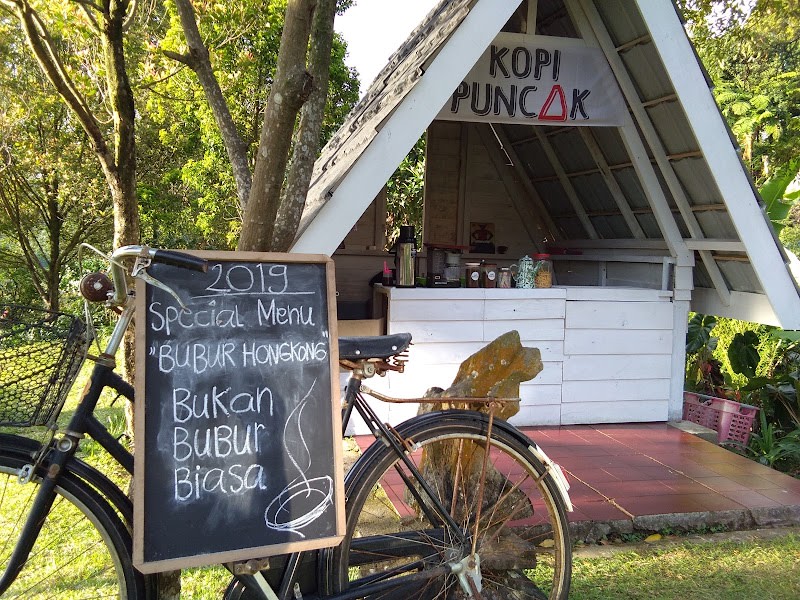 KOPI
PUNCAK
2019
Special Menu
"BUBUR HONGKONG"
BUKAN
BUBUR
BIASA